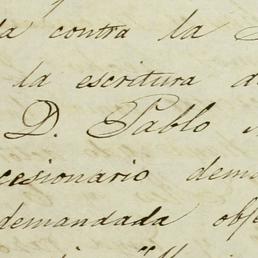 a contra la
la escritura d
D. Pablo
cesionario dem
demandada obj